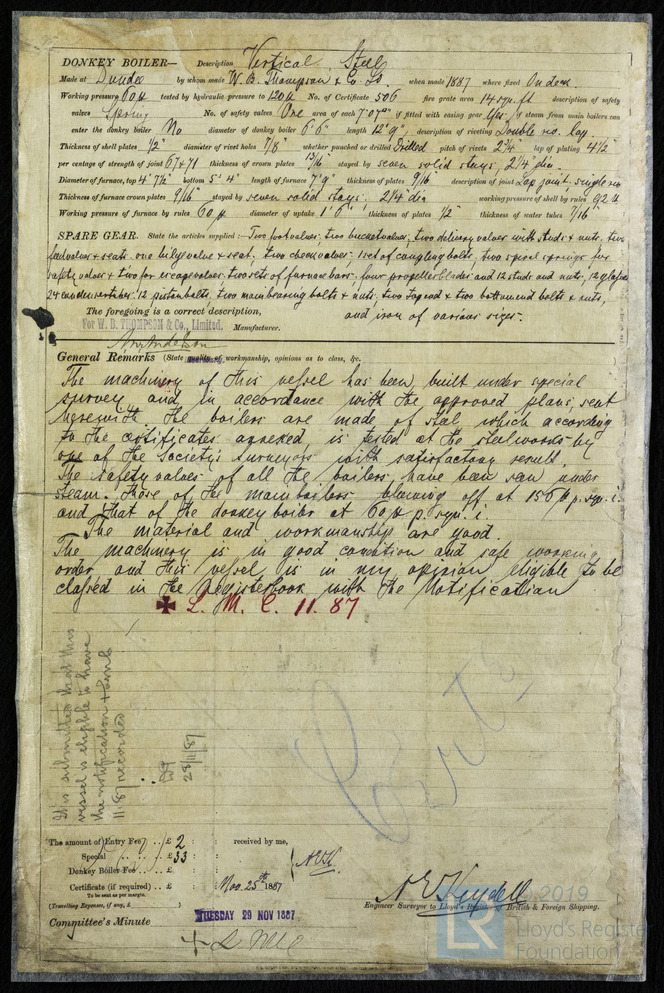 DONKEY BOILER— Description Vertical Steel
Made at Dundee by whom made W. B. Thompson & Co. Ld when made 1887 where fixed On deck
Working pressure 60 # tested by hydraulic pressure to 120 # No. of Certificate 506 fire grate area 14 sqr. ft description of safety
valves Spring No. of safety valves One area of each 7.07" if fitted with easing gear Yes if steam from main boilers can
enter the donkey boiler No diameter of donkey boiler 6'6" length 12'9" description of riveting Double riv. lap.
Thickness of shell plates 1/2" diameter of rivet holes 7/8" whether punched or drilled Drilled pitch of rivets 2 3/4" lap of plating 4 1/2
per centage of strength of joint 67 & 71 thickness of crown plates 13/16" stayed by seven solid stays, 2 1/4 dia.
Diameter of furnace, top 4' 7 1/2" bottom 5' 4" length of furnace 7'9" thickness of plates 9/16 description of joint Lap joint, single riv
Thickness of furnace crown plates 9/16" stayed by seven solid stays, 2 1/4 dia working pressure of shell by rules 92 #
Working pressure of furnace by rules 60 # diameter of uptake 1' 6" thickness of plates 1/2" thickness of water tubes 7/16"
SPARE GEAR. State the articles supplied:— Two footvalves, two bucketvalves, two delivery valves with studs & nuts, two
feedvalves & seats one bilge valve & seat, two checkvalves, 1 set of coupling bolts, two spiral springs for
safety valves & two for escapevalves, two sets of furnace bars, four propellerblades and 12 studs and nuts, 12 glasses
24 condensertubes, 12 pistonbolts, two mainbearing bolts & nuts, two top end & two bottom end bolts & nuts,
The foregoing is a correct description, and iron of various sizes.
For W. B. THOMPSON & Co., Limited. Manufacturer.
General Remarks (State quality of workmanship, opinions as to class, &c.
The machinery of this vessel has been built under special
survey and in accordance with the approved plans, sent
herewith the boilers are made of steel which according
to the certificates annexed, is tested at the steelworks by
one of the Society's Surveyors with satisfactory result.
The safetyvalves of all the boilers have been seen under
steam. Those of the mainboilers blowing off at 156 # p. sqr. i.
and that of the donkey boiler at 60 # p. sqr. i.
The material and workmanship are good.
The machinery is in good condition and safe working
order and this vessel is in my opinion eligible to be
classed in the Registerbook with the Notification
✠ L. M. C. 11. 87
It is submitted that this
vessel is eligible to have
the notification + LMC
11.87 recorded
28/11/87
The amount of Entry Fee .. £ 2 : : received by me,
Special .. .. £ 33 : :
Donkey Boiler Fee .. .. £ : :
Certificate (if required) .. £ : : Nov. 25th 1887
To be sent as per margin.
(Travelling Expenses, if any, £ )
Engineer Surveyor to Lloyd's Register of British & Foreign Shipping.
Committee's Minute TUESDAY 29 NOV 1887
+ L M C
2019
LR
Lloyd's Register
Foundation